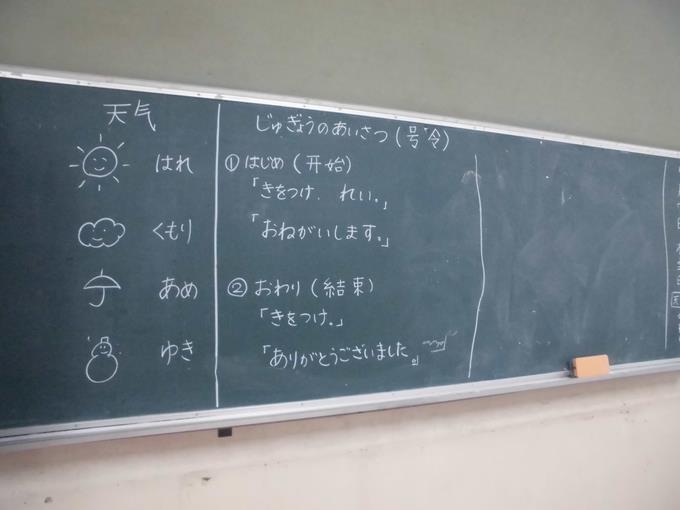 天気
はれ
くもり
あめ
ゆき
じゅぎょうのあいさつ(号令)
①はじめ(开始)
「きをつけ、れい。」
「おねがいします。」
②おわり(結束)
「きをつけ。」
「ありがとうございました。」